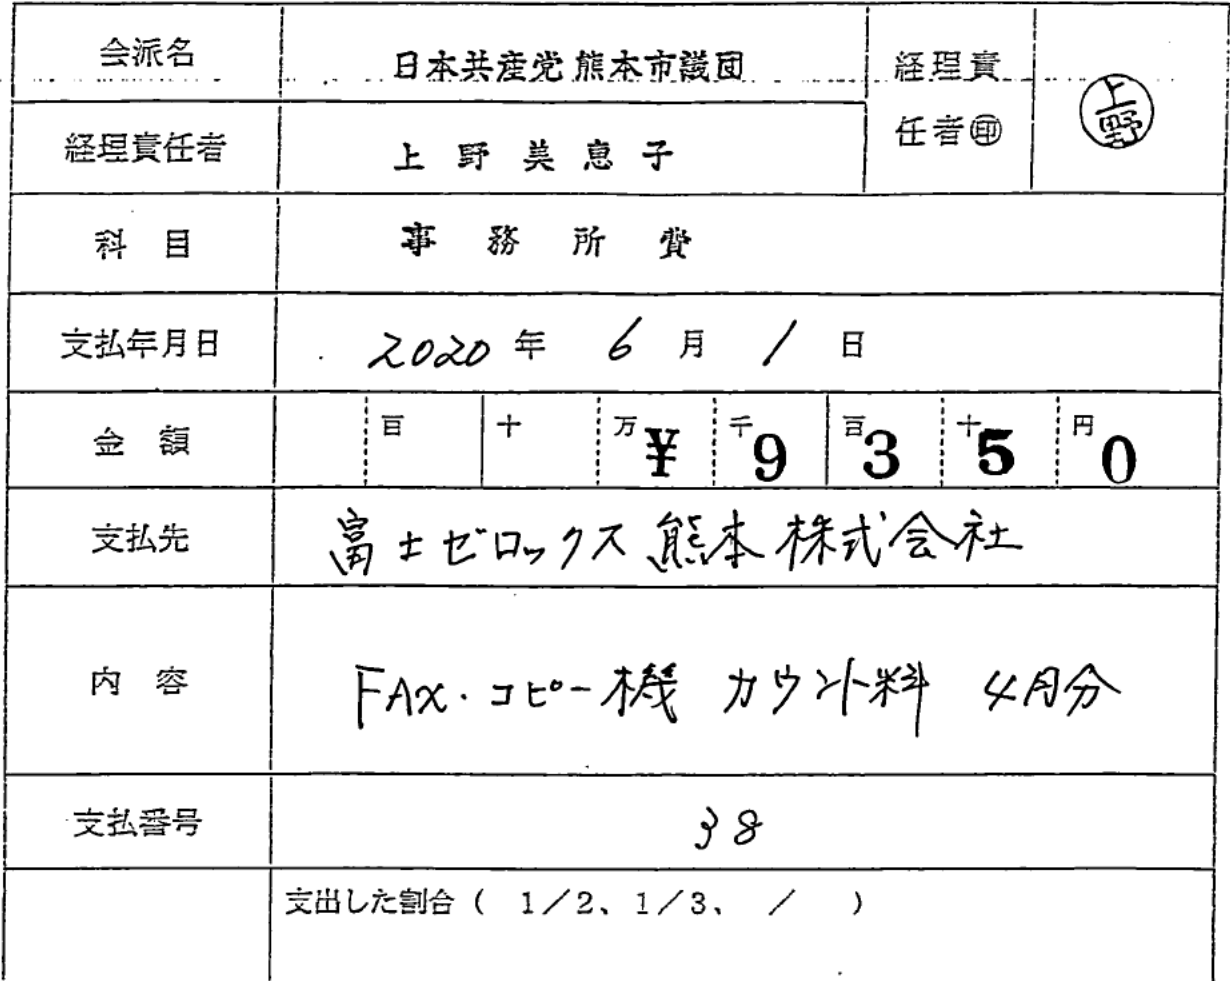 会派名 日本共産党熊本市議団 経理責任者㊞ 上野
経理責任者 上野美恵子
科目 事務所費
支払年月日 2020年 6月 1日
金額 百 十 万¥ 千9 百3 十5 円0
支払先 富士ゼロックス熊本株式会社
内容 FAX・コピー機 カウント料 4月分
支払番号 38
支出した割合( 1/2、1/3、 / )